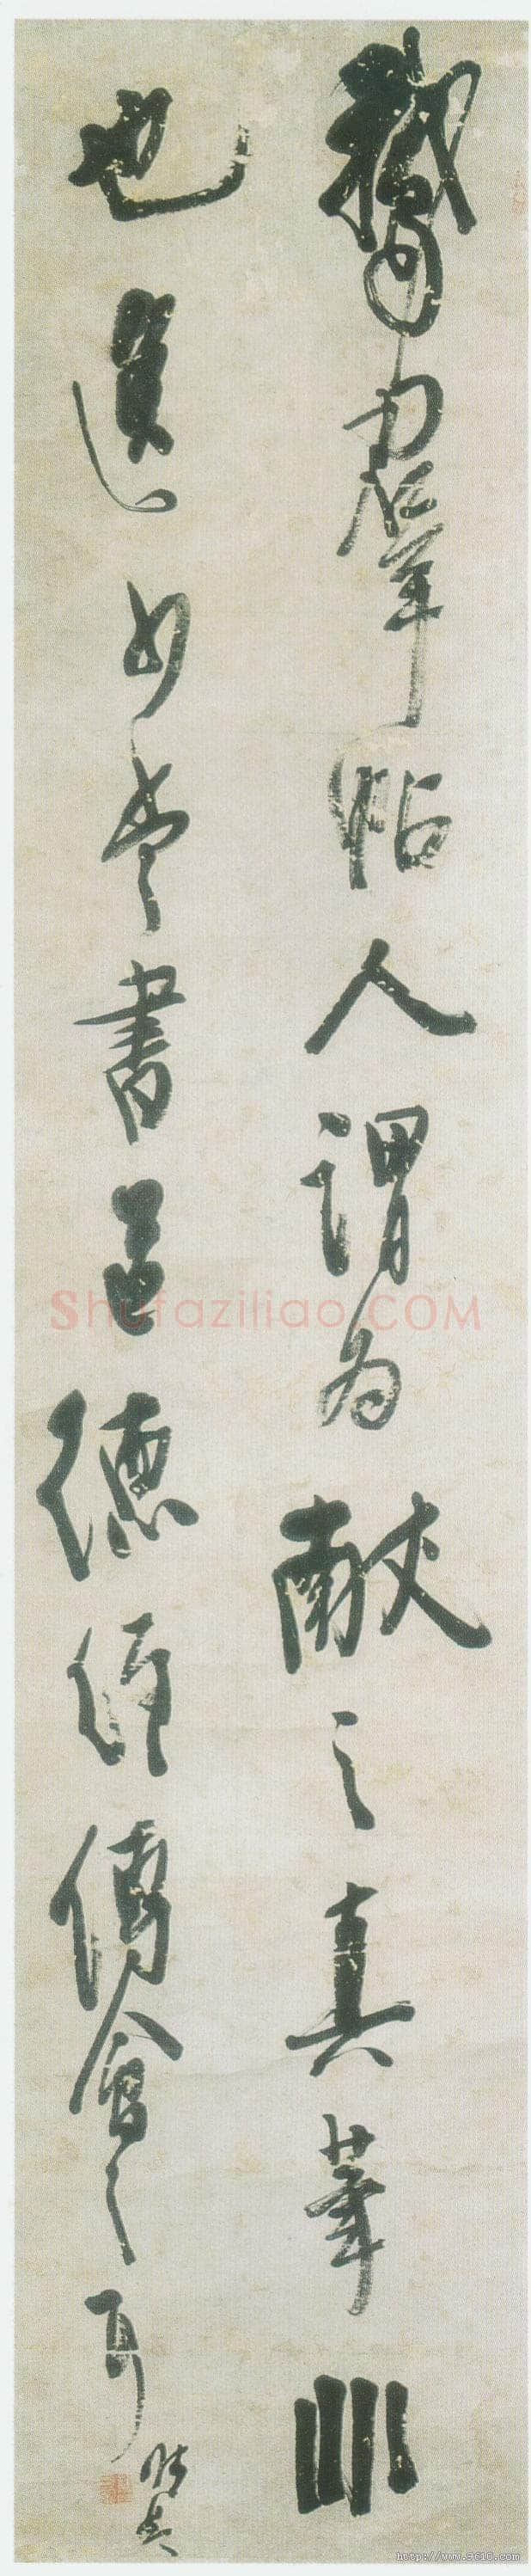 鵞羣帖人謂为献之真筆非
也如書道德經傅會之耳
Shufaziliao.COM
http://www.9610.com